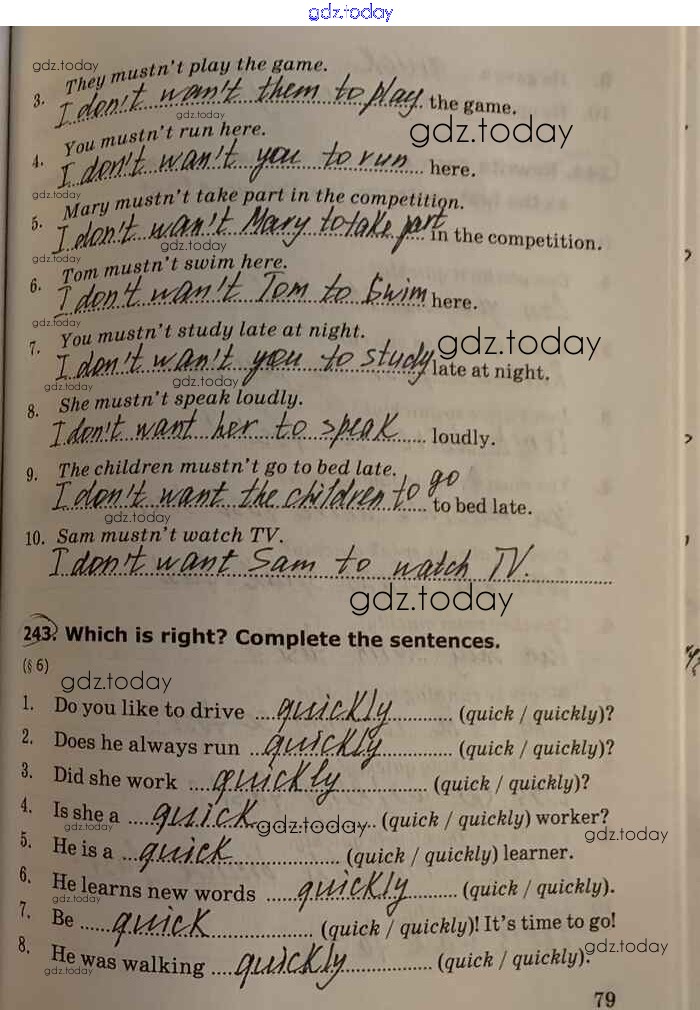 gdz.today
gdz.today
They mustn't play the game.
3. I don't wan't them to play the game.
gdz.today
You mustn't run here.
gdz.today
4. I don't wan't you to run here.
gdz.today
gdz.today
Mary mustn't take part in the competition.
5. I don't wan't Mary to take part in the competition.
gdz.today
Tom mustn't swim here.
6. I don't wan't Tom to Swim here.
gdz.today
You mustn't study late at night.
gdz.today
7. I don't wan't you to study late at night.
gdz.today
gdz.today
She mustn't speak loudly.
8. I don't want her to speak loudly.
The children mustn't go to bed late.
9. I don't want the children to go to bed late.
gdz.today
10. Sam mustn't watch TV.
I don't want Sam to watch TV.
gdz.today
243. Which is right? Complete the sentences.
(§ 6)
gdz.today
1. Do you like to drive quickly (quick / quickly)?
2. Does he always run quickly (quick / quickly)?
3. Did she work quickly (quick / quickly)?
4. Is she a quick (quick / quickly) worker?
gdz.today
gdz.today
gdz.today
5. He is a quick (quick / quickly) learner.
6. He learns new words quickly (quick / quickly).
gdz.today
7. Be quick (quick / quickly)! It's time to go!
gdz.today
8. He was walking quickly (quick / quickly).
gdz.today
79